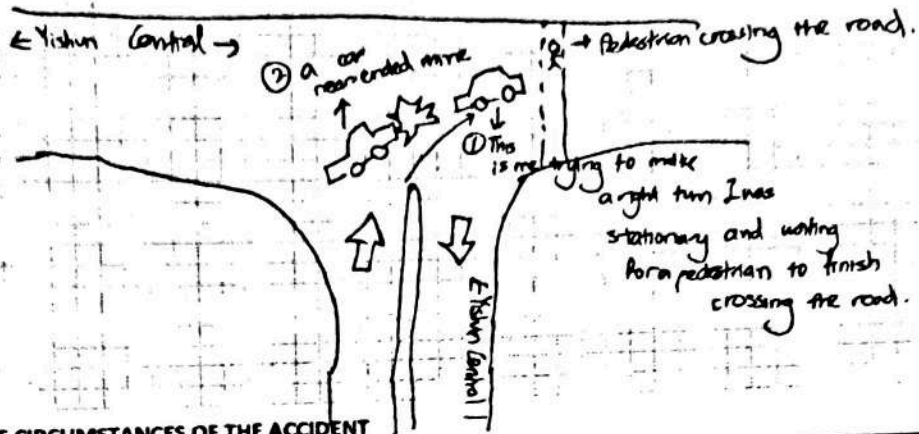 ← Yishun Central →
→ Pedestrian crossing the road.
② a car
rear ended mine
① This
is me trying to make
a right turn I was
stationary and waiting
for a pedestrian to finish
crossing the road.
Yishun Central 1
CIRCUMSTANCES OF THE ACCIDENT